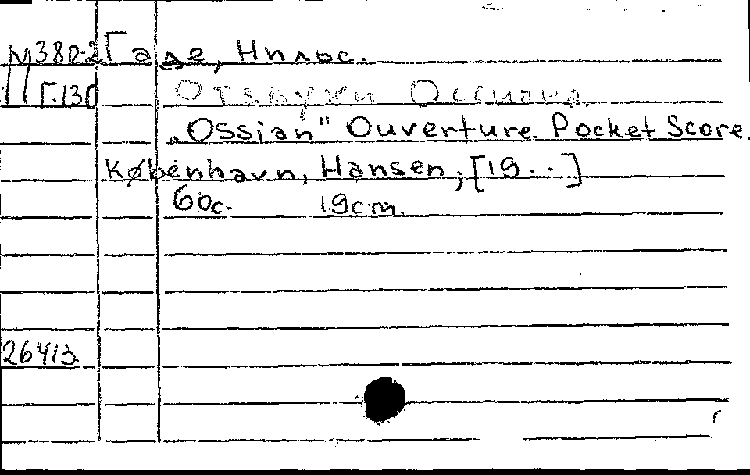 М380-2 Гаде, Нильс.
Г.130 Отзвуки Оссиана.
„Ossian" Ouverture. Pocket Score.
København, Hansen, [19 . . ]
60с. 19cm.
26413